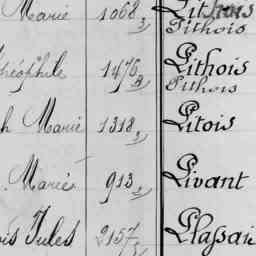 Marie 1068 3 Pithois
Pithois
Théophile 1476 2 Pithois
Pithois
h Marie 1318 3 Pitois
Marie 913 2 Pivant
is Jules 2157 Plassai